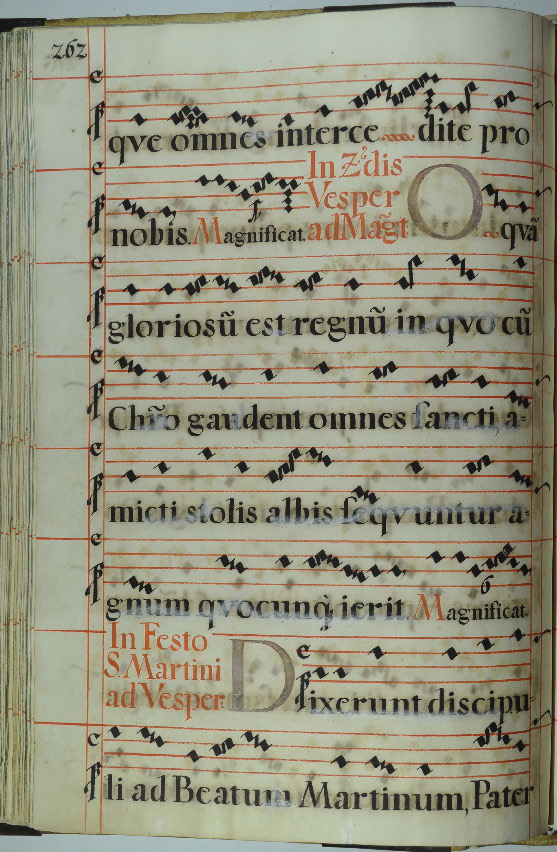 262
qve omnes interce dite pro
nobis. Magnificat. In 2.dis Vesper ad Mag̃t O quã
gloriosũ est regnũ in qvo cũ
Chr̃o gaudent omnes sancti, a-
micti stolis albis seqvuntur a-
gnum qvocunq̃ ierit. Magnificat.
In Festo
S. Martini
ad Vesper: Dixerunt discipu-
li ad Beatum Martinum, Pater